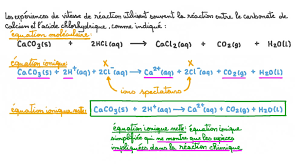 Les expériences de vitesse de réaction utilisent souvent la réaction entre le carbonate de
calcium et l'acide chlorhydrique, comme indiqué :
équation moléculaire :
CaCO₃(s) + 2HCl(aq) → CaCl₂(aq) + CO₂(g) + H₂O(l)
équation ionique :
CaCO₃(s) + 2H⁺(aq) + 2Cl⁻(aq) → Ca²⁺(aq) + 2Cl⁻(aq) + CO₂(g) + H₂O(l)
ions spectateurs
équation ionique nette : CaCO₃(s) + 2H⁺(aq) → Ca²⁺(aq) + CO₂(g) + H₂O(l)
équation ionique nette : équation ionique
simplifiée qui ne montre que les espèces
impliquées dans la réaction chimique